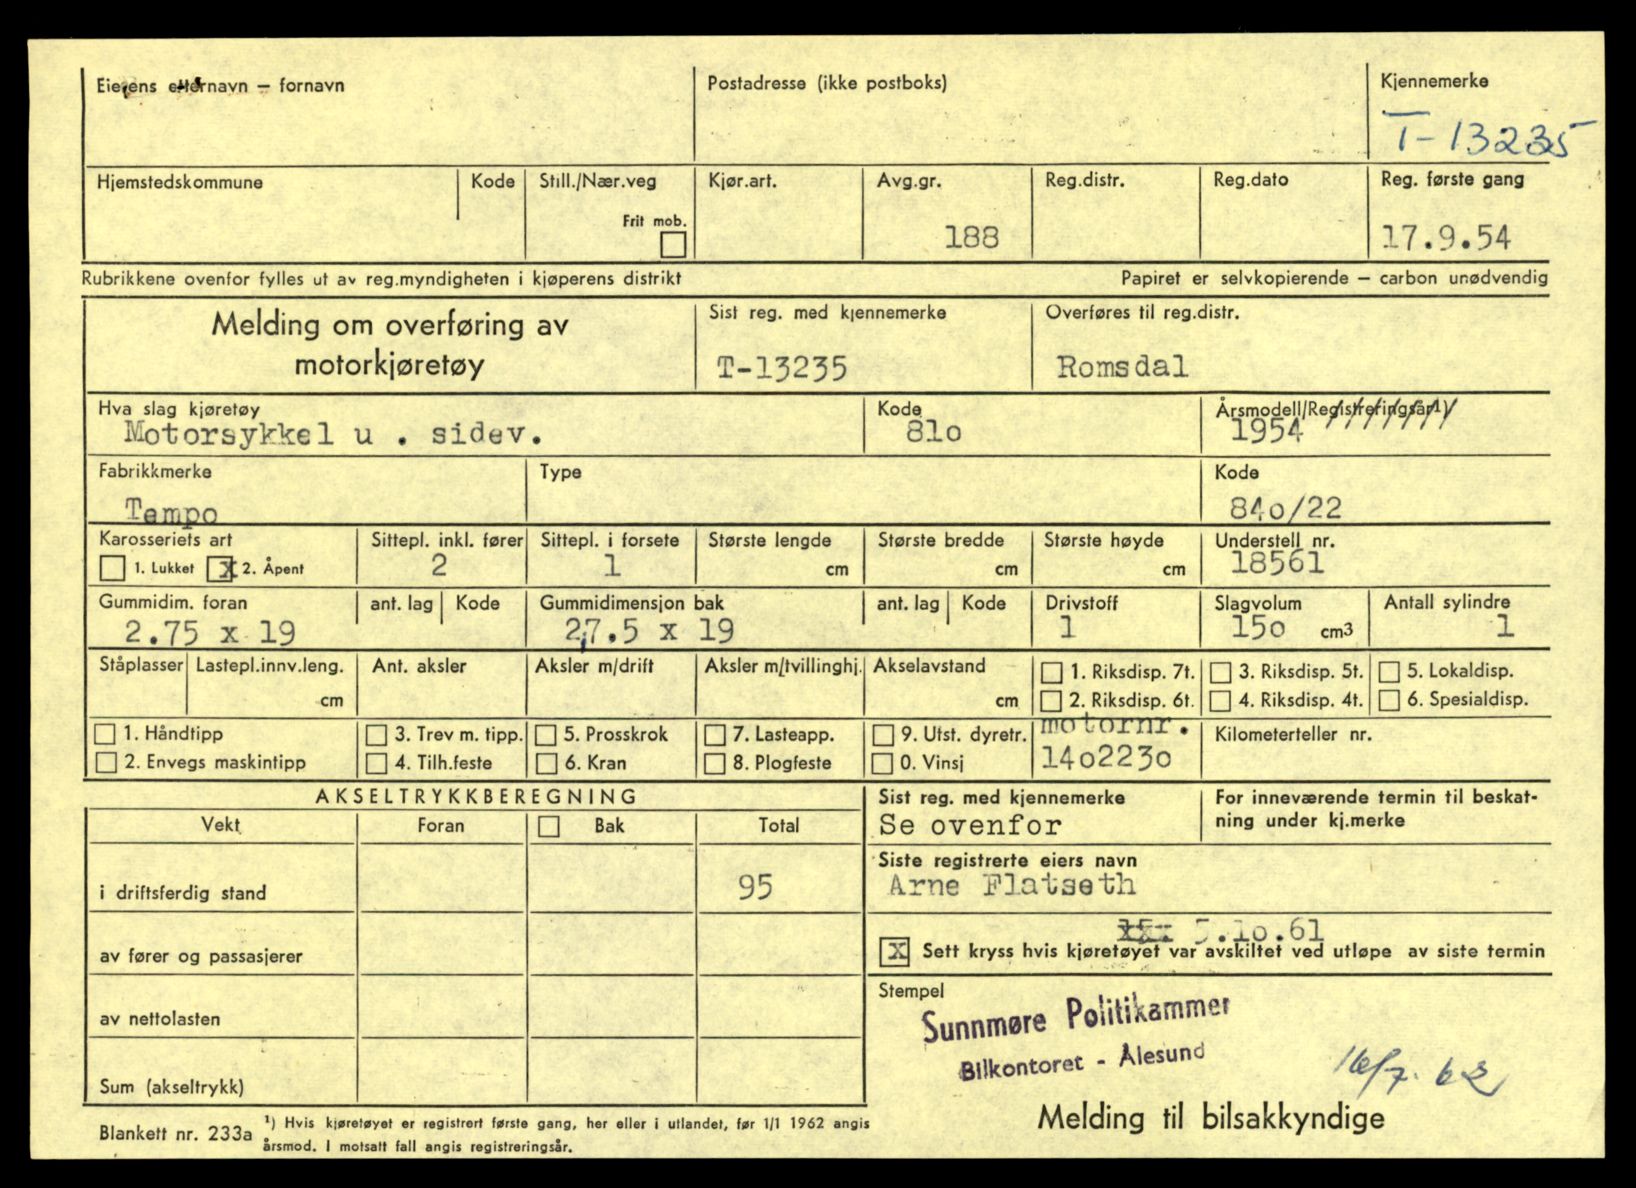 Eierens etternavn – fornavn
Postadresse (ikke postboks)
Kjennemerke
T-13235
Hjemstedskommune
Kode
Still./Nær.veg
Frit mob.
Kjør.art.
Avg.gr.
188
Reg.distr.
Reg.dato
Reg. første gang
17.9.54
Rubrikkene ovenfor fylles ut av reg.myndigheten i kjøperens distrikt
Papiret er selvkopierende – carbon unødvendig
Melding om overføring av
motorkjøretøy
Sist reg. med kjennemerke
T-13235
Overføres til reg.distr.
Romsdal
Hva slag kjøretøy
Motorsykkel u . sidev.
Kode
81o
Årsmodell/Registreringsår¹)
1954
Fabrikkmerke
Tempo
Type
Kode
84o/22
Karosseriets art
1. Lukket X 2. Åpent
Sittepl. inkl. fører
2
Sittepl. i forsete
1
Største lengde
cm
Største bredde
cm
Største høyde
cm
Understell nr.
18561
Gummidim. foran
2.75 x 19
ant. lag
Kode
Gummidimensjon bak
27.5 x 19
ant. lag
Kode
Drivstoff
1
Slagvolum
15o cm3
Antall sylindre
1
Ståplasser
Lastepl.innv.leng.
cm
Ant. aksler
Aksler m/drift
Aksler m/tvillinghj.
Akselavstand
cm
1. Riksdisp. 7t.
2. Riksdisp. 6t.
3. Riksdisp. 5t.
4. Riksdisp. 4t.
5. Lokaldisp.
6. Spesialdisp.
1. Håndtipp
2. Envegs maskintipp
3. Trev m. tipp.
4. Tilh.feste
5. Prosskrok
6. Kran
7. Lasteapp.
8. Plogfeste
9. Utst. dyretr.
0. Vinsj
motornr.
14o223o
Kilometerteller nr.
AKSELTRYKKBEREGNING
Vekt
Foran
Bak
Total
i driftsferdig stand
95
av fører og passasjerer
av nettolasten
Sum (akseltrykk)
Sist reg. med kjennemerke
Se ovenfor
For inneværende termin til beskat-
ning under kj.merke
Siste registrerte eiers navn
Arne Flatseth
5.1o.61
X Sett kryss hvis kjøretøyet var avskiltet ved utløpe av siste termin
Stempel
Sunnmøre Politikammer
Bilkontoret - Ålesund
16/7. 62
Melding til bilsakkyndige
Blankett nr. 233a
¹) Hvis kjøretøyet er registrert første gang, her eller i utlandet, før 1/1 1962 angis
årsmod. I motsatt fall angis registreringsår.